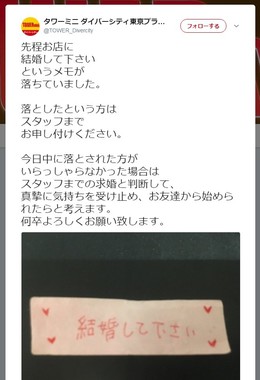 タワーミニ ダイバーシティ東京プラ...
@TOWER_Divercity
フォローする
先程お店に
結婚して下さい
というメモが
落ちていました。
落としたという方は
スタッフまで
お申し付けください。
今日中に落とされた方が
いらっしゃらなかった場合は
スタッフまでの求婚と判断して、
真摯に気持ちを受け止め、お友達から始めら
れたらと考えます。
何卒よろしくお願い致します。
結婚して下さい